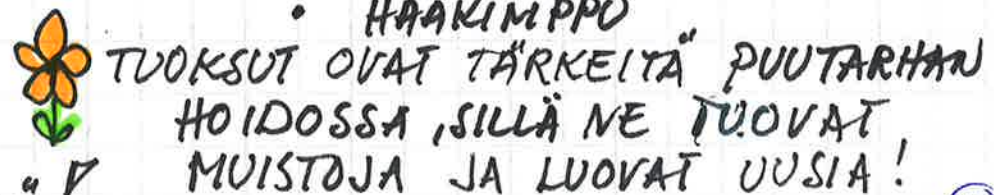 • HÄÄKIMPPU
TUOKSUT OVAT TÄRKEITÄ PUUTARHAN
HOIDOSSA, SILLÄ NE TUOVAT
MUISTOJA JA LUOVAT UUSIA!